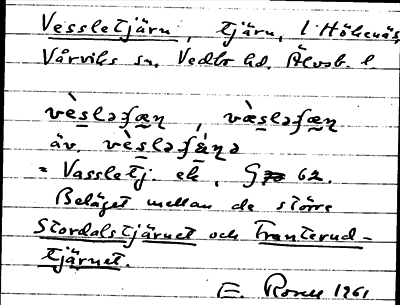 Vessletjärn, tjärn, i Hökenäs,
Vårviks sn. Vedbo hd. Älvsb. l
vèslaʃæɳ, væslaʃæɳ
äv. vèslaʃæ̀ɳa
= Vassletj. ek, G 62.
Beläget mellan de större
Stordalstjärnet och Tranterud-
tjärnet.
E. Rosell 1961